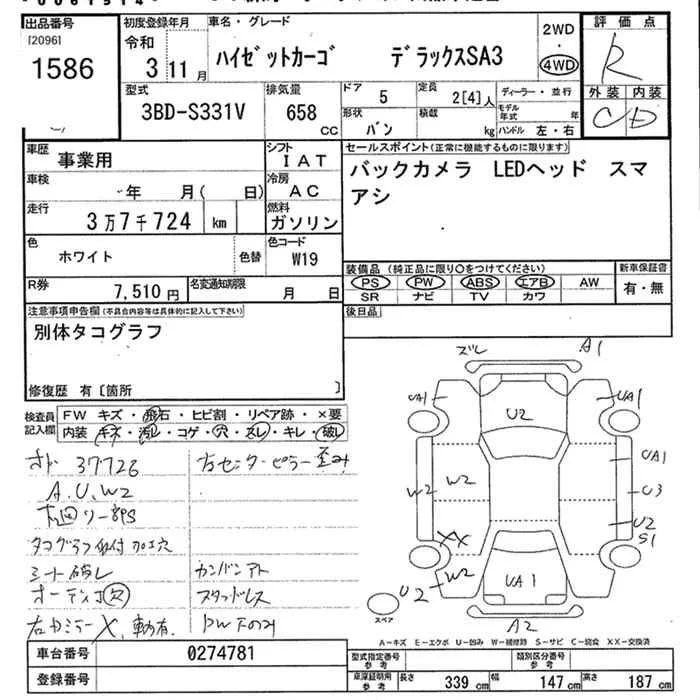 出品番号
[2096]
1586
初度登録年月
令和
3 11 月
車名・グレード
ハイゼットカーゴ デラックスSA3
2WD
4WD
評価点
R
外装 内装
C D
型式
3BD-S331V
排気量
658 CC
ドア 5
形状 バン
定員 2[4]人
積載 kg
ディーラー・並行
モデル年式 年
ハンドル 左・右
車歴 事業用
シフト IAT
セールスポイント(正常に機能するものに限ります)
バックカメラ LEDヘッド スマ
アシ
車検 年 月( 日)
冷房 AC
走行 3万7千724 km
燃料 ガソリン
色 ホワイト 色替
色コード W19
装備品(純正品に限り○をつけてください)
新車保証書
PS PW ABS エアB AW
有・無
SR ナビ TV カワ
R券 7,510円
名変通知期限 月 日
後日品
注意事項申告欄(不具合内容等は具体的に記入して下さい)
別体タコグラフ
修復歴 有[箇所 ]
検査員記入欄
FW キズ・飛石・ヒビ割・リペア跡・×要
内装 キズ・汚レ・コゲ・穴・スレ・キレ・破レ
37726
右センターピラー歪み
A.U.W2
タコグラフ
加工穴
シート破レ
カンバンアト
オーディオ穴
スタッドレス
ズレ
A1
UA1
U2
UA1
UA1
W2
W2
U3
U2
S1
XX
W2
U2
UA1
A2
スペア
A-キズ E-エクボ U-凹み W-補修跡 S-サビ C-腐食 XX-交換済
車台番号 0274781
型式指定番号
参考
類別区分番号
参考
登録番号
車庫証明用
参考
長さ 339 cm 幅 147 cm 高さ 187 cm